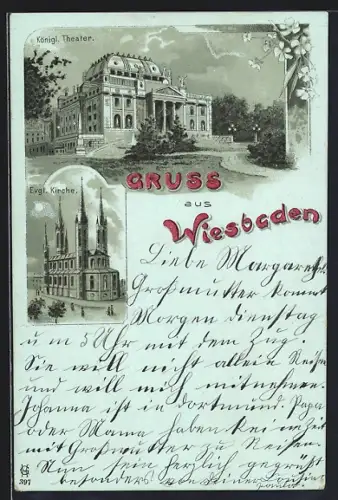 Königl. Theater.
Evgl. Kirche.
GRUSS
aus
Wiesbaden
Liebe Margarethe
Großmutter kommt
Morgen dienstag
um 5 Uhr mit dem Zug.
Sie will nicht allein Reisen
und will mich mitnehmen.
Johanna ist in dortmund. Papa
oder Mama haben keine zeit
mit Großmutter zu Reisen.
Nun sein herzlich gegrüßt
besonders von deiner Cousine
397